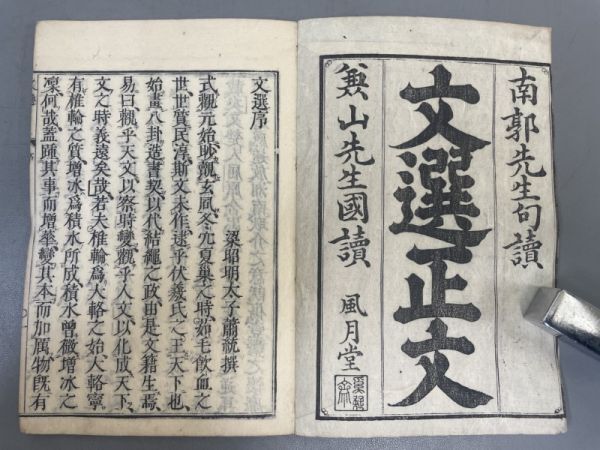 南郭先生句讀
文選正文
兼山先生國讀
風月堂
文選序
梁昭明太子蕭統撰
式觀元始眇覿玄風冬穴夏巢之時茹毛飲血之
世世質民淳斯文未作逮乎伏羲氏之王天下也
始畫八卦造書契以代結繩之政由是文籍生焉
易曰觀乎天文以察時變觀乎人文以化成天下
文之時義遠矣哉若夫椎輪爲大輅之始大輅寧
有椎輪之質增冰爲積水所成積水曾微增冰之
凜何哉蓋踵其事而增華變其本而加厲物旣有